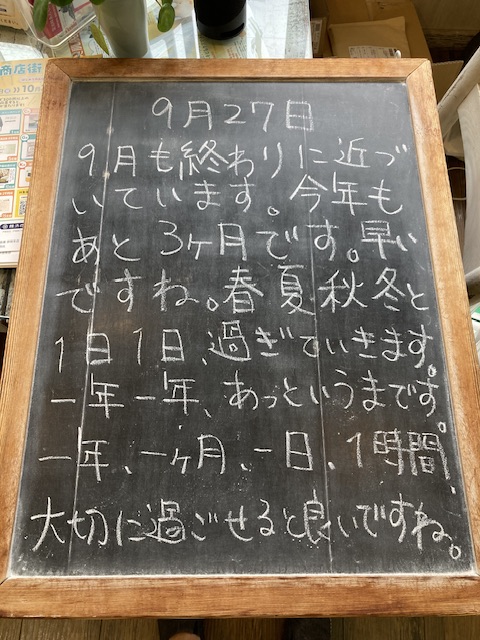 商店街
9月27日
9月も終わりに近づ
いています。今年も
あと3ヶ月です。早い
ですね。春夏秋冬と
1日1日、過ぎていきます。
一年一年、あっというまです。
一年、一ヶ月、一日、1時間、
大切に過ごせると良いですね。